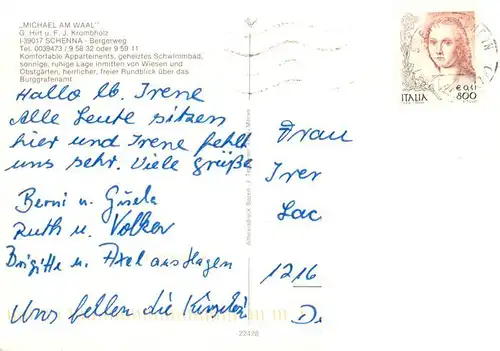 „MICHAEL AM WAAL"
G. Hirt u. F. J. Krombholz
I-39017 SCHENNA - Bergerweg
Tel. 0039473 / 9 58 32 oder 9 59 11
Komfortable Appartements, geheiztes Schwimmbad,
sonnige, ruhige Lage inmitten von Wiesen und
Obstgärten, herrlicher, freier Rundblick über das
Burggrafenamt
Hallo lb. Irene
Alle Leute sitzen
hier und Irene fehlt
uns sehr. Viele grüße
Berni u. Gisela
Ruth u. Volker
Brigitte u. Axel aus Hagen
Uns fehlen die
€ 0,41
ITALIA 800
Frau
Irer
Lac
1216
D.
22428